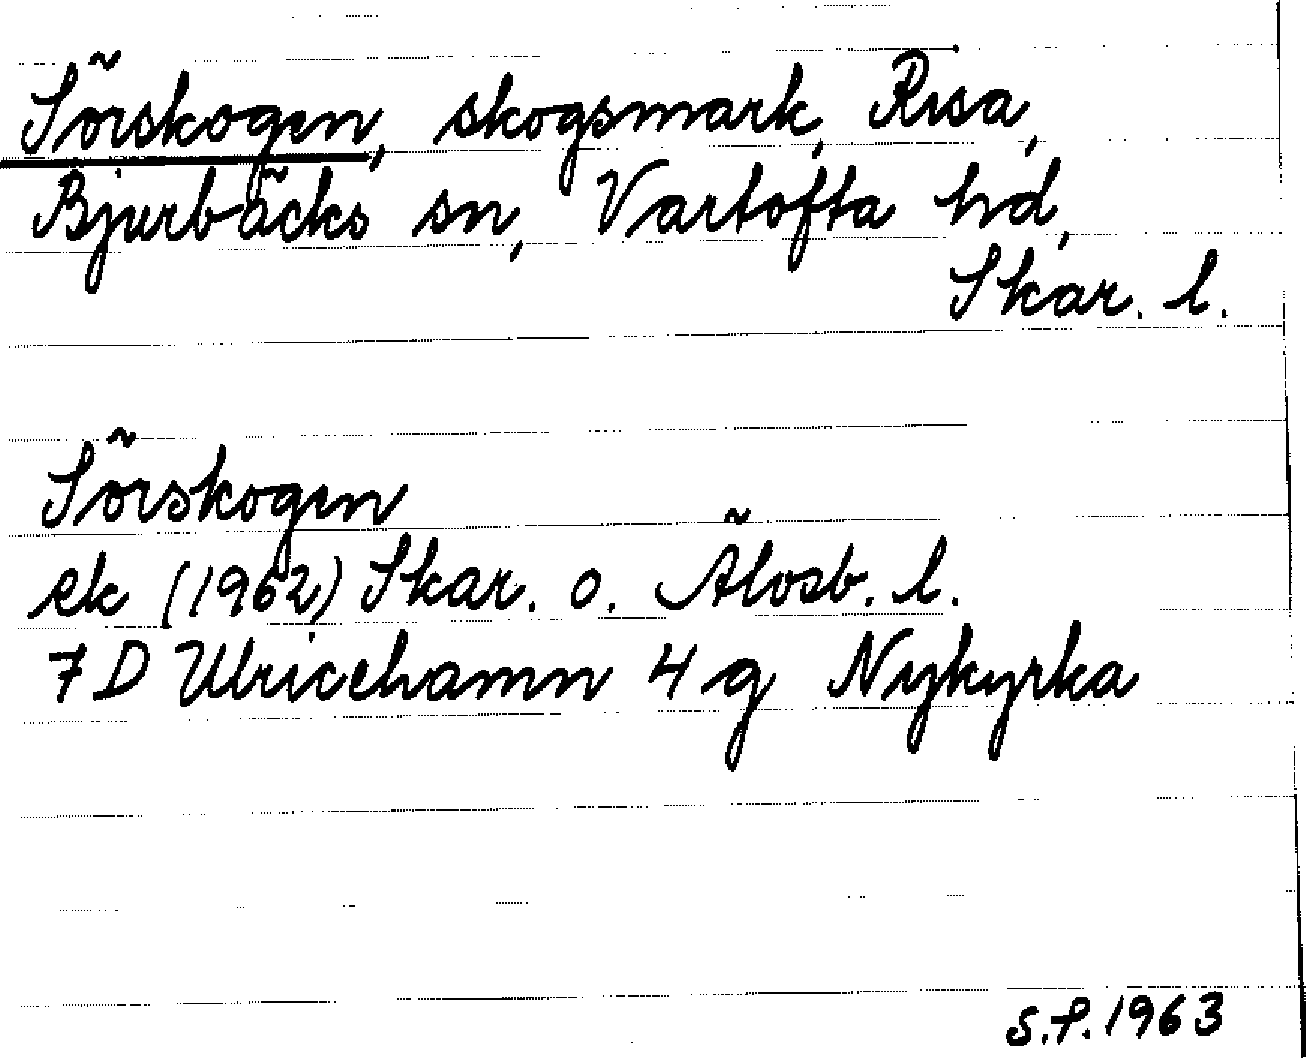 Sörskogen, skogsmark, Risa,
Bjurbäcks sn, Vartofta hd,
Skar. l.
Sörskogen
ek (1962) Skar. o. Älvsb. l.
7 D Ulricehamn 4 g Nykyrka
S.F. 1963